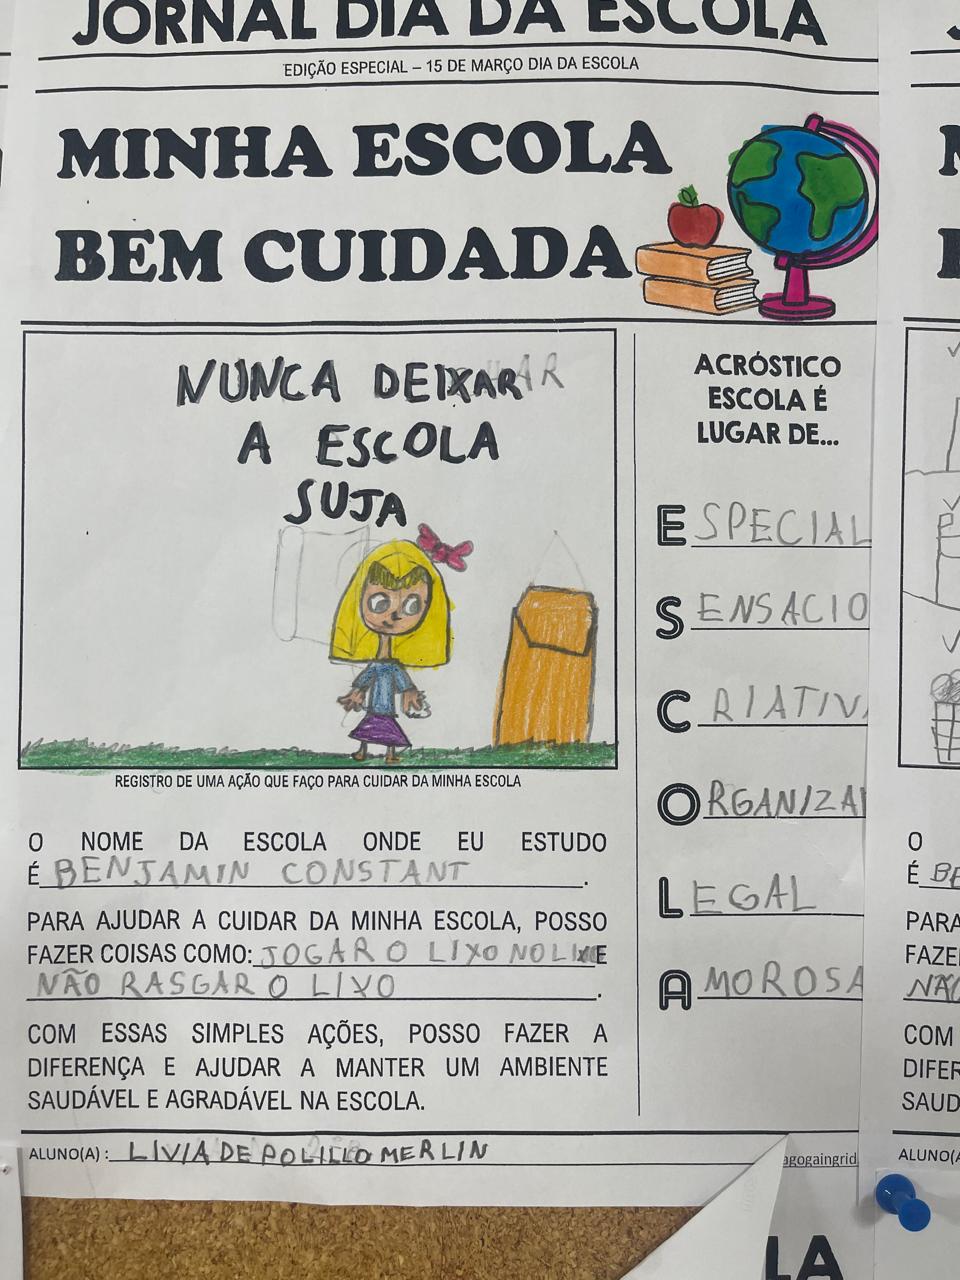 JORNAL DIA DA ESCOLA
EDIÇÃO ESPECIAL – 15 DE MARÇO DIA DA ESCOLA
MINHA ESCOLA
BEM CUIDADA
NUNCA DEIXAR
A ESCOLA
SUJA
REGISTRO DE UMA AÇÃO QUE FAÇO PARA CUIDAR DA MINHA ESCOLA
O NOME DA ESCOLA ONDE EU ESTUDO
É BENJAMIN CONSTANT.
PARA AJUDAR A CUIDAR DA MINHA ESCOLA, POSSO
FAZER COISAS COMO: JOGAR O LIXO NO LIXO E
NÃO RASGAR O LIVO.
COM ESSAS SIMPLES AÇÕES, POSSO FAZER A
DIFERENÇA E AJUDAR A MANTER UM AMBIENTE
SAUDÁVEL E AGRADÁVEL NA ESCOLA.
ACRÓSTICO
ESCOLA É
LUGAR DE...
ESPECIAL
SENSACIO
CRIATIV
ORGANIZA
LEGAL
AMOROSA
ALUNO(A) : LIVIA DE POLILLO MERLIN
agogaingrid
O
É BE
PARA
FAZE
NÃO
COM
DIFER
SAUD
ALUNO(A
LA